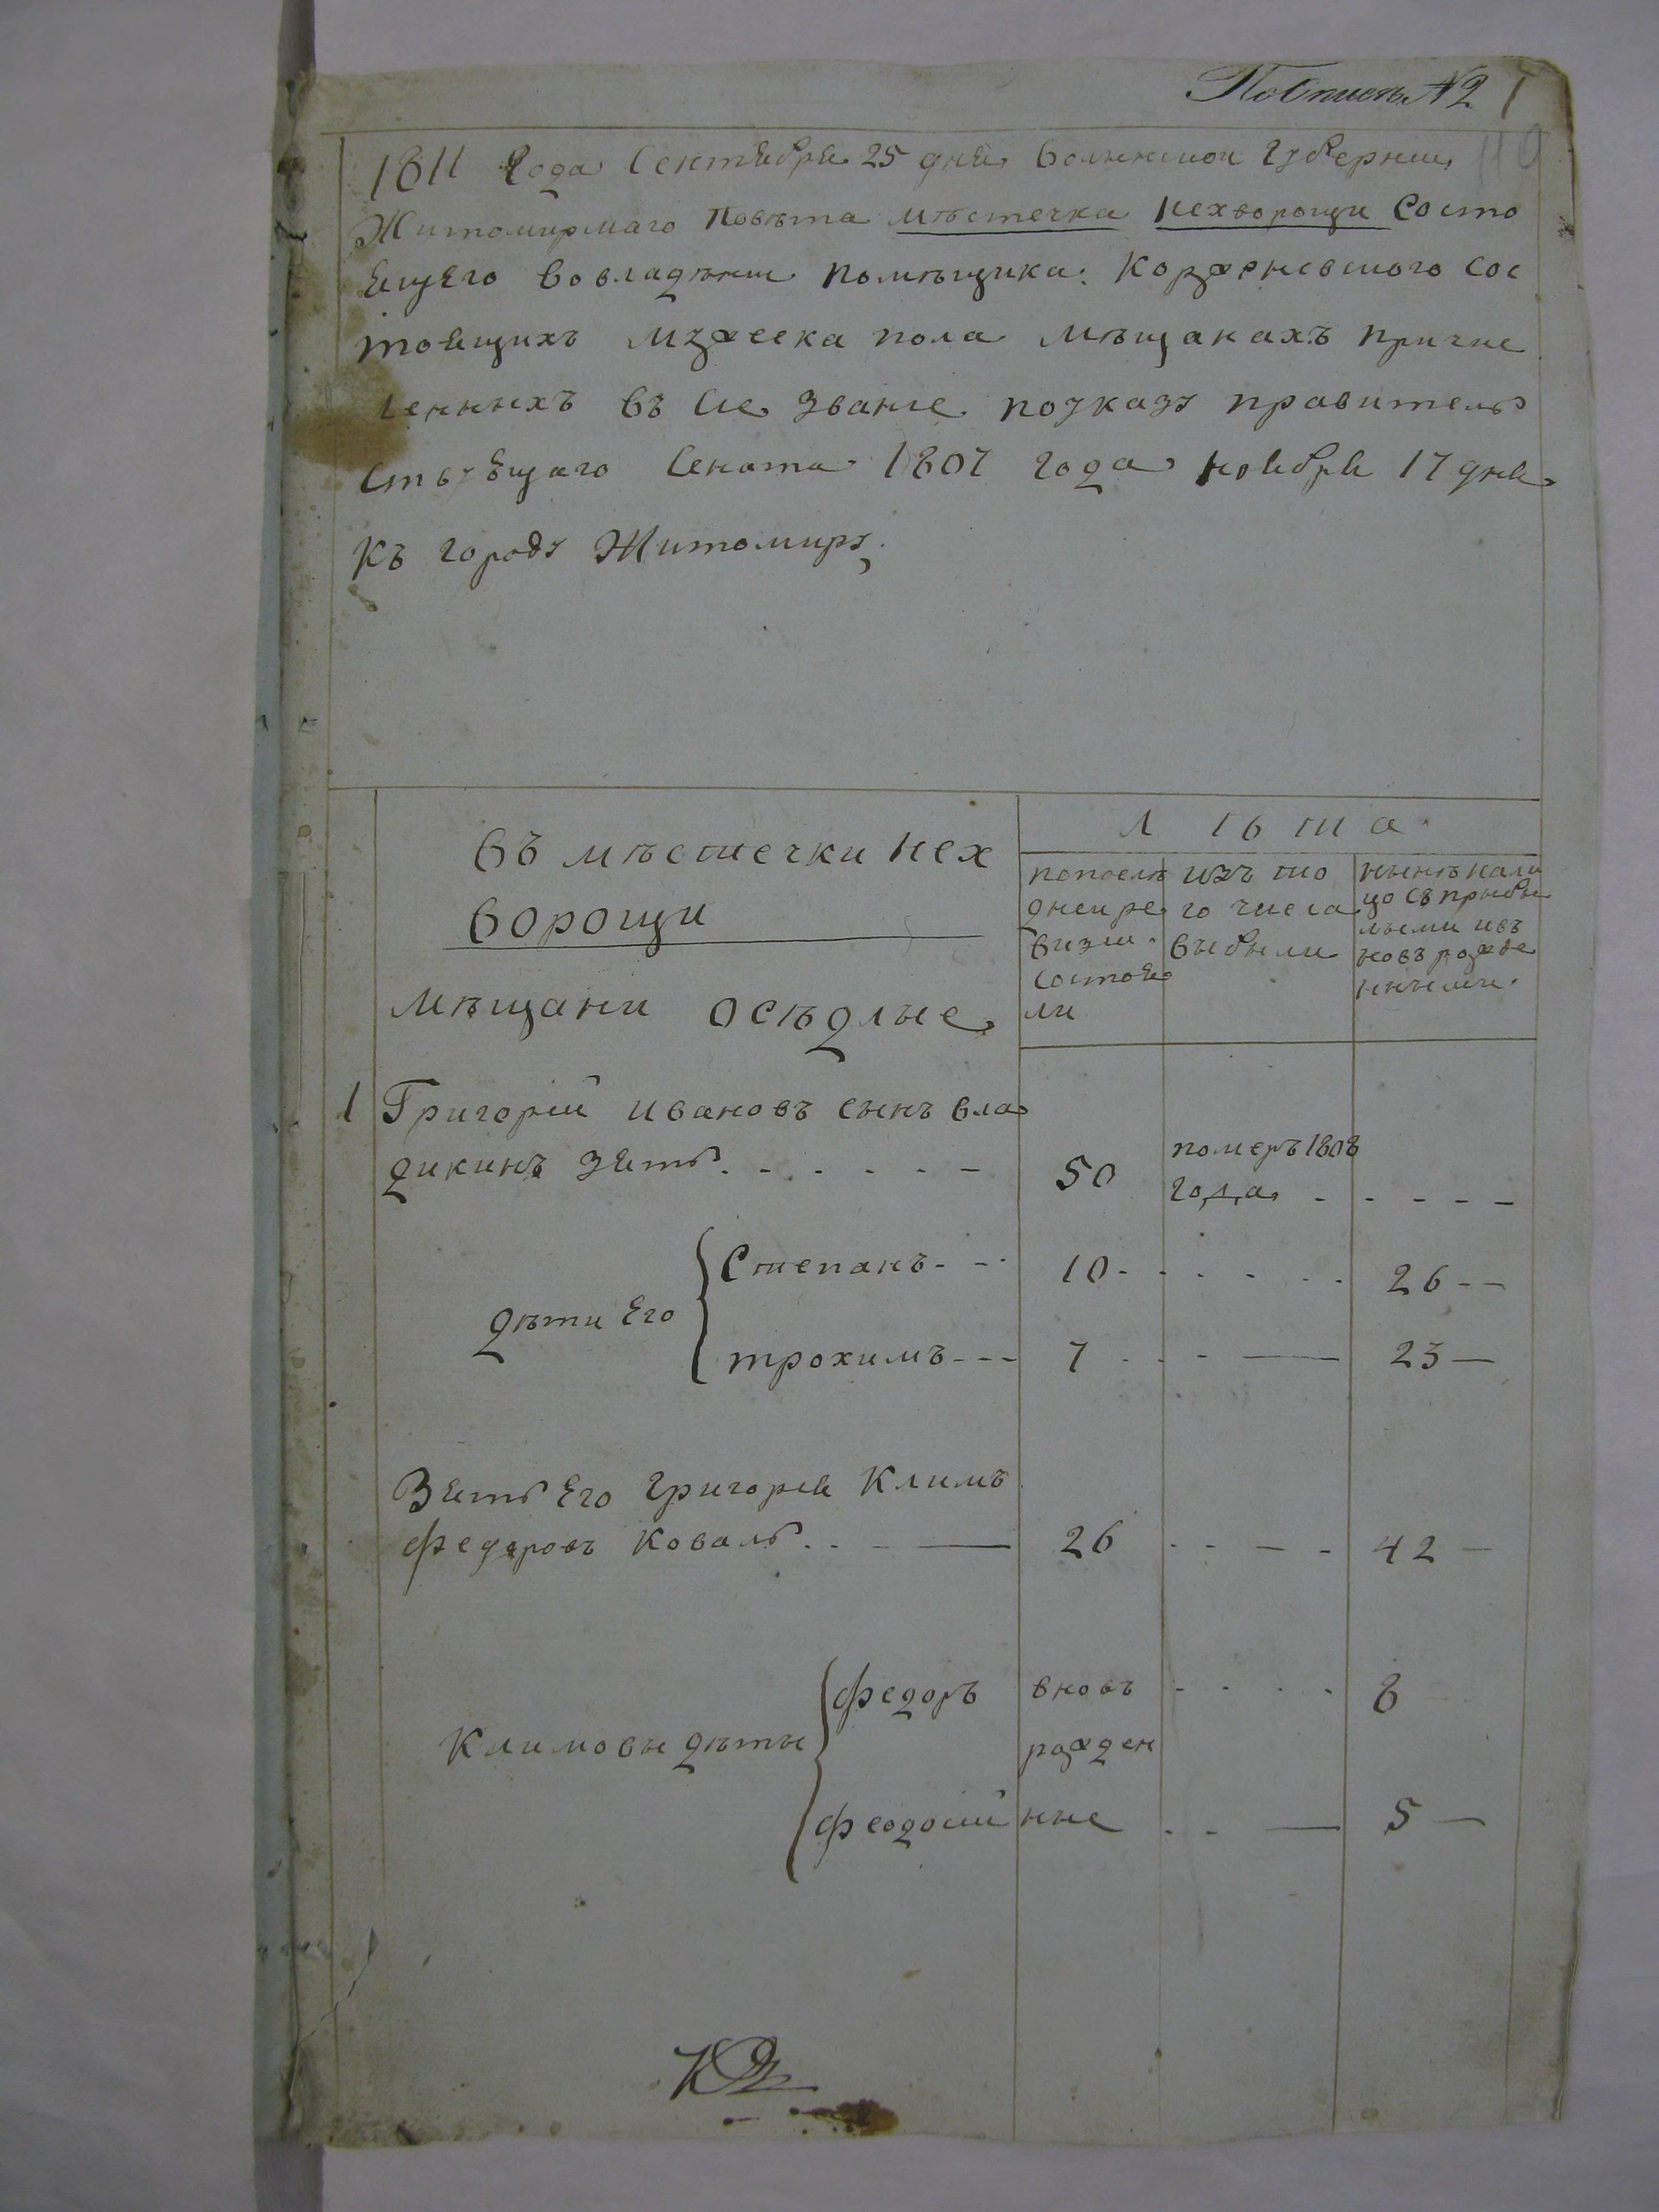 По описи № 2 1
1811 года Сентября 25 дня Волынской Губернии
Житомирскаго Повѣта мѣстечка Нехворощи Состо
ящего во владѣнии Помѣщика
тоящихъ мужеска пола мѣщанахъ причис
ленныхъ въ сие звание по указу правитель
ствующаго Сената 1807 года ноября 17 дня
Къ городу Житомиру,
Лѣта
въ мѣстечки Нех
ворощи
мѣщани осѣдлые
попослѣ
дней ре
визии
состоя
ли
изъ то
го числа
выбыли
нынѣ нали
цо съ прыбы
лыми и въ
новъ рожде
нными
1 Григорий Ивановъ сынъ вла
дикинъ зять 50 померъ 1808
года
дѣти Его
Степанъ 10 26
трохимъ 7 23
Зять Его Григория Климъ
Федоровъ Коваль 26 42
Климовы дѣты
Федоръ вновъ 8
рожден
Феодосий ные 5